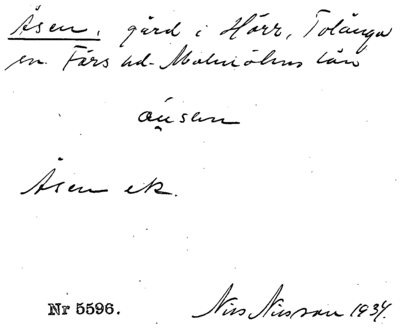 Åsen, gård i Hörr, Tolånga
sn. Färs hd. Malmöhus län
åusen
Åsen ek.
Nr 5596. Nils Nilsson 1934.